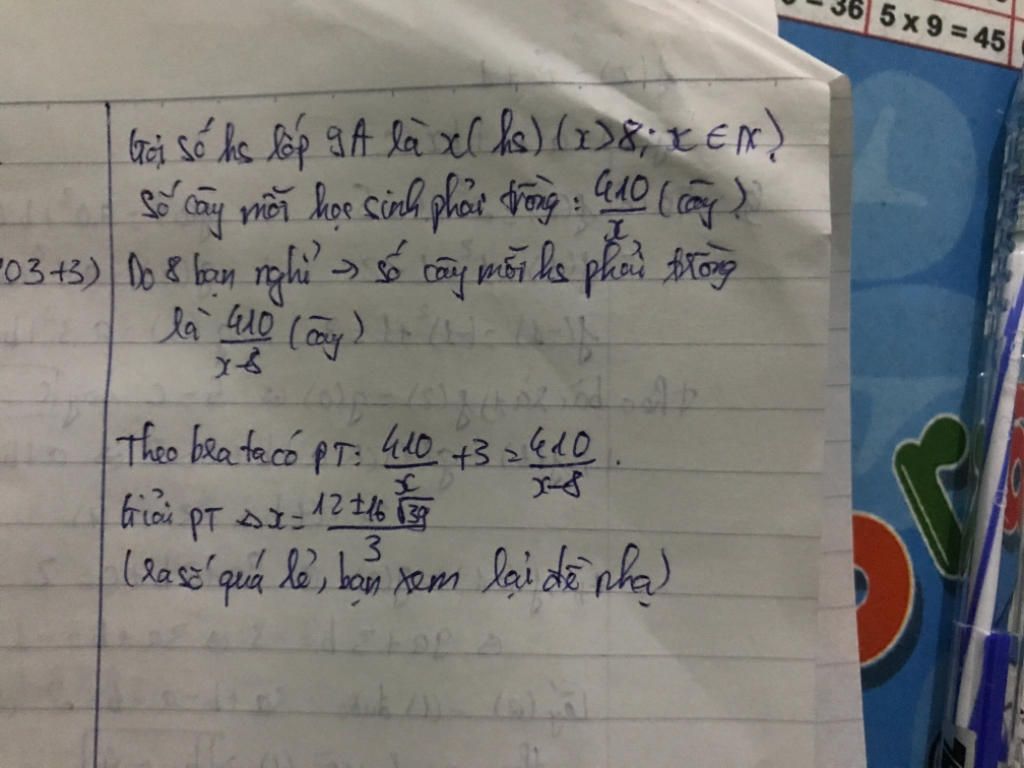 = 36 5 x 9 = 45
Gọi số hs lớp 9A là x( hs) ( x > 8; x ∈ N*)
Số cây mỗi học sinh phải trồng: 410/x (cây)
03 +3) Do 8 bạn nghỉ → số cây mỗi hs phải trồng
là 410/x-8 (cây)
Theo bra ta có PT: 410/x + 3 = 410/x-8.
Giải PT => x = 12 ± 16√39/3
(ra số quá lẻ, bạn xem lại đề nhạ)